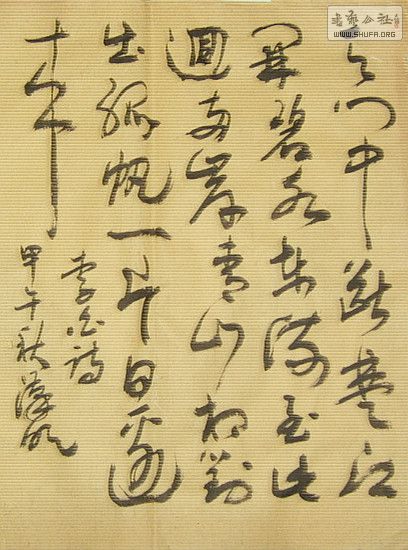 書法公社
WWW.SHUFA.ORG
天门中斷楚江
開碧水東流至此
迴兩岸青山相對
出孤帆一片日邊
來
李白詩
甲午秋